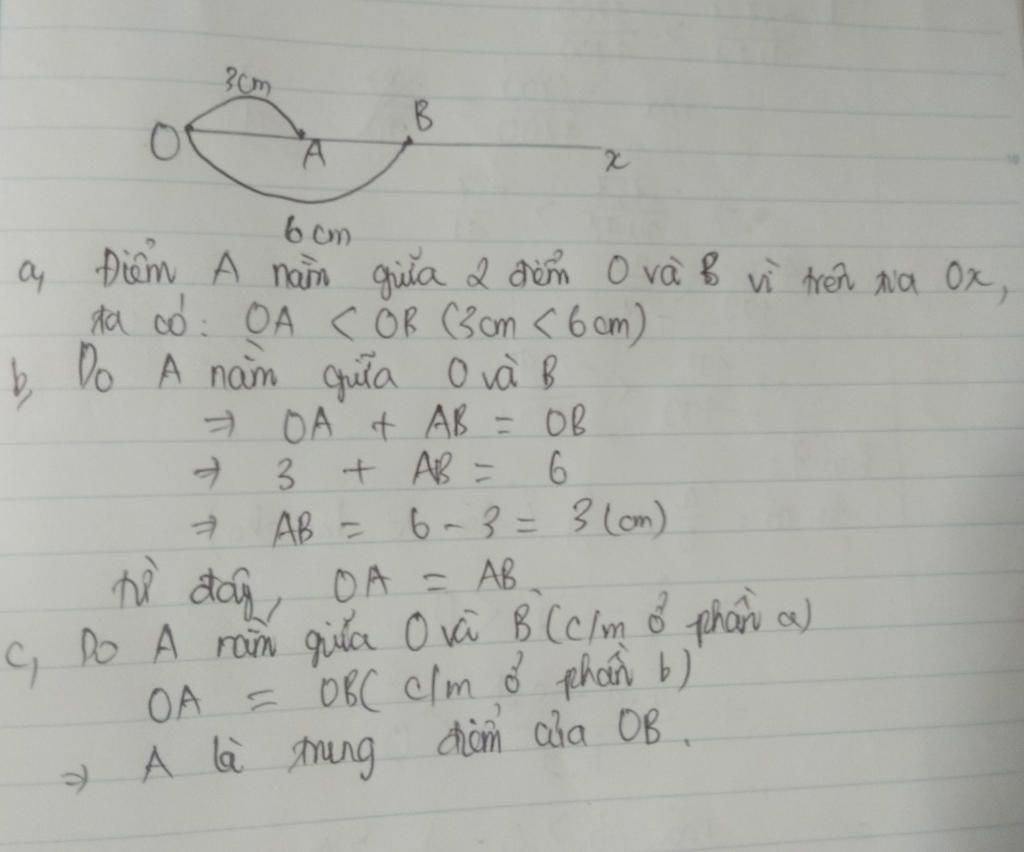 3cm
O A B x
6cm
a, Điểm A nằm giữa 2 điểm O và B vì trên tia Ox,
ta có: OA < OB (3cm < 6cm)
b, Do A nằm giữa O và B
⇒ OA + AB = OB
⇒ 3 + AB = 6
⇒ AB = 6 - 3 = 3 (cm)
từ đây, OA = AB.
c, Do A nằm giữa O và B (c/m ở phần a)
OA = OB (c/m ở phần b)
⇒ A là trung điểm của OB.